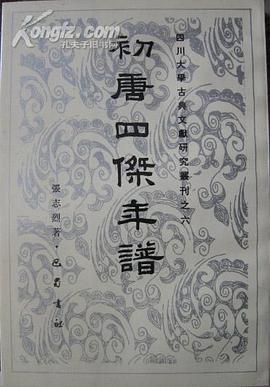 四川大學古典文獻研究叢刊之六
初唐四傑年譜
張志烈著·巴蜀書社
孔夫子旧书网
KONGFZ.COM